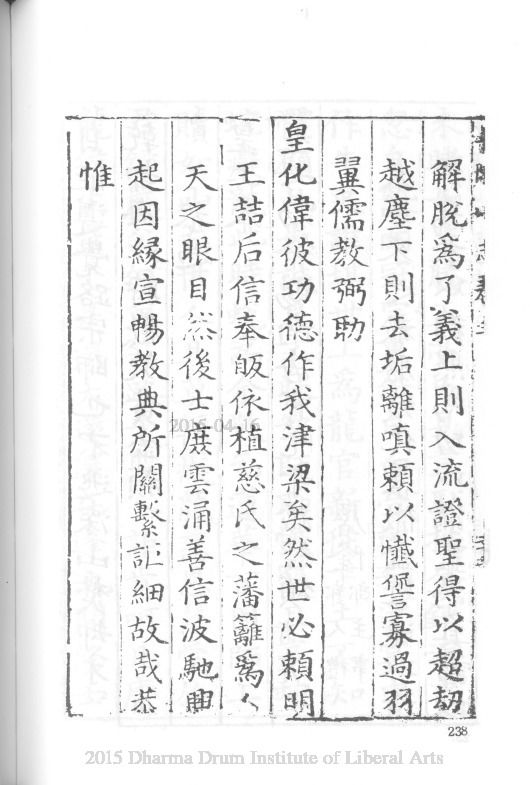 解脫為了義上則入流證聖得以超劫
越塵下則去垢離嗔賴以懺愆寡過羽
翼儒教弼助
皇化偉彼功德作我津梁矣然世必賴明
王喆后信奉皈依植慈氏之藩籬為人
天之眼目然後士庶雲涌善信波馳興
起因緣宣暢教典所關繫詎細故哉恭
惟
2015-04-16
238
2015 Dharma Drum Institute of Liberal Arts